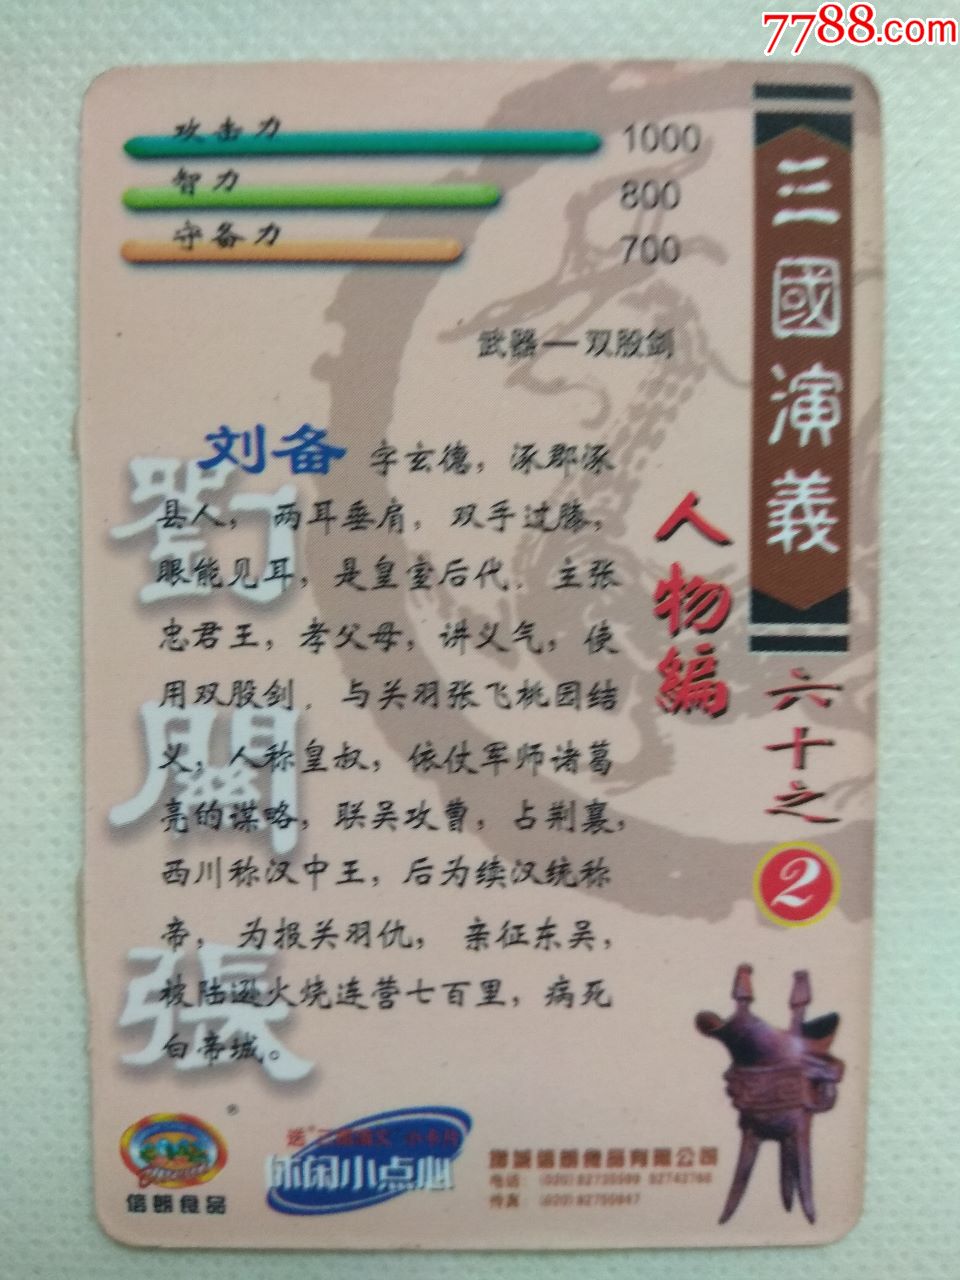 7788.com
攻击力 1000
智力 800
守备力 700
武器—双股剑
三國演義
人物編
六十之
2
劉
關
張
刘备 字玄德，涿郡涿
县人，两耳垂肩，双手过膝，
眼能见耳，是皇室后代．主张
忠君王，孝父母，讲义气，使
用双股剑．与关羽张飞桃园结
义，人称皇叔，依仗军师诸葛
亮的谋略，联吴攻曹，占荆襄，
西川称汉中王，后为续汉统称
帝，为报关羽仇，亲征东吴，
被陆逊火烧连营七百里，病死
白帝城。
®
信朗食品
送"三国演义"小卡片
休闲小点心
信朗食品有限公司
电话：(020)
传真：(020)